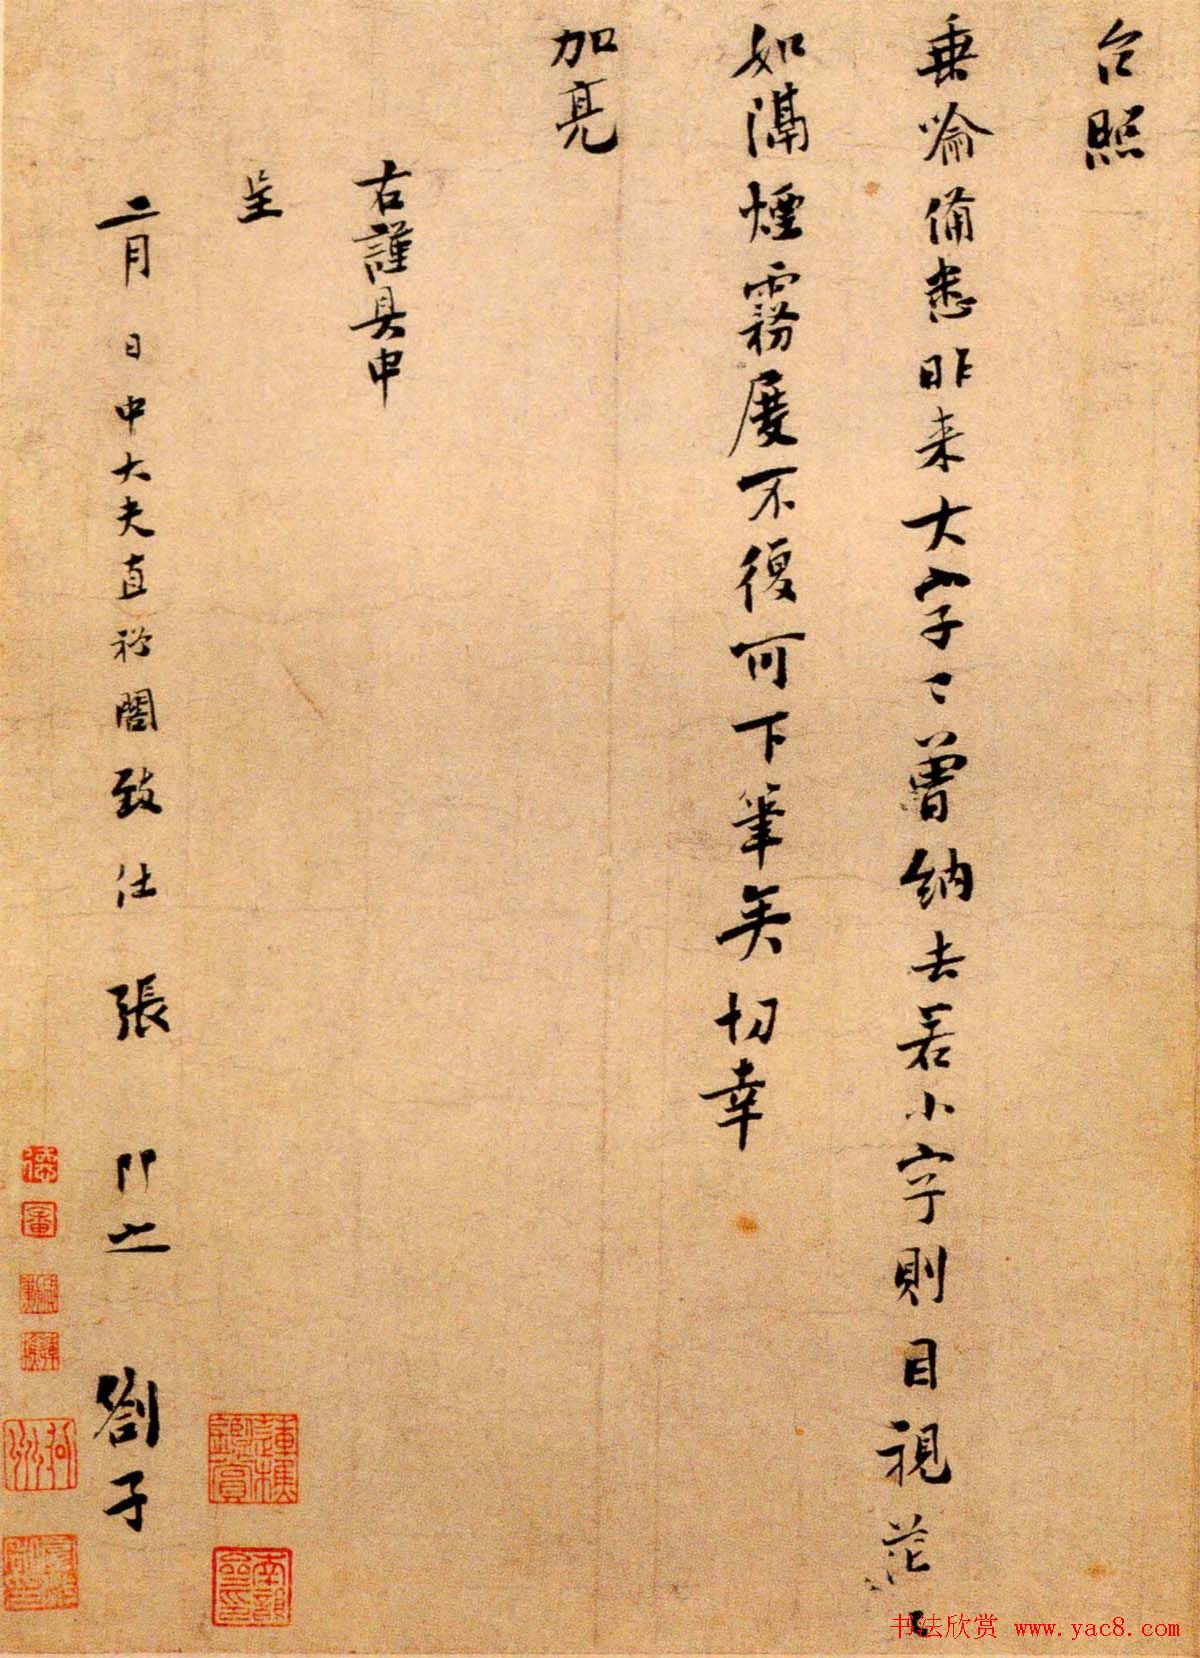 台照
垂喻備悉昨来大字々曾納去若小字則目視茫々
如隔煙霧屡不復可下筆矣切幸
加亮
右謹具申
呈
二月 日中大夫直秘閣致仕張 即之 劄子
书法欣赏 www.yac8.com